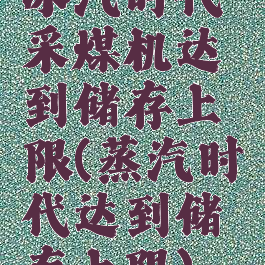 冰汽时代
采煤机达
到储存上
限(蒸汽时
代达到储
存上限)